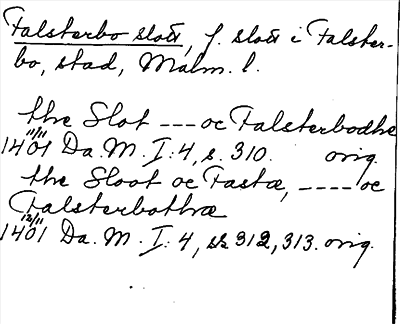 Falsterbo slott, f. slott i Falster-
bo, stad, Malm. l.
the Slot --- oc Falsterbodhe
11/11
1401 Da. M. I:4, s. 310. orig.
the Sloot oc Fastæ, ---- oc
Falsterbothræ
12/11
1401 Da. M. I:4, ss. 312, 313. orig.